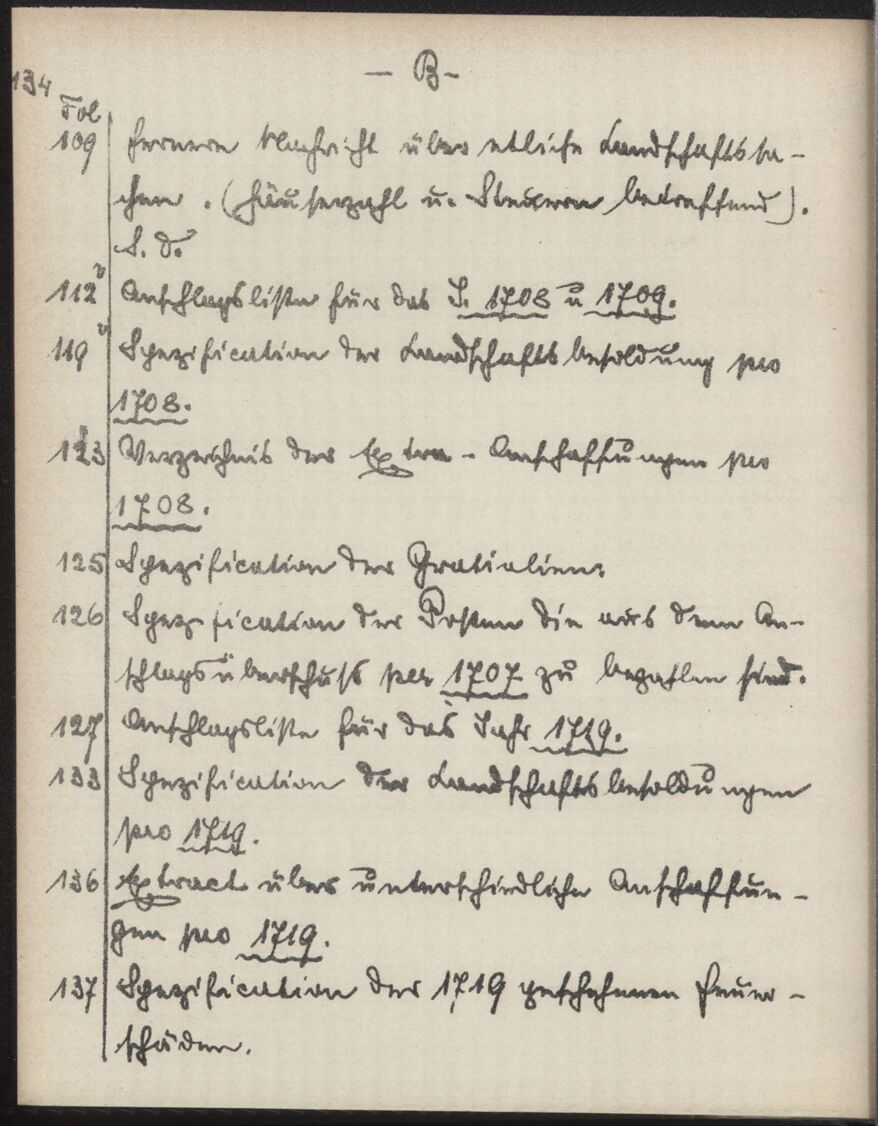 134
— B —
Fol
109 Fernere Nachricht über etliche Landschaftssa-
chen. (Häuserzahl u. Steuern betreffend).
S. d.
112v Anschlagsliste für das J. 1708 u 1709.
119v Spezification der Landschaftsbesoldung pro
1708.
123 Verzeichnis der Extra-Anschaffungen pro
1708.
125 Spezification der Gratialien.
126 Spezification der Posten die aus dem An-
schlagsüberschuss per 1707 zu bezahlen sind.
127 Anschlagsliste für das Jahr 1719.
133 Spezification der Landschaftsbesoldungen
pro 1719.
136 Extract über unterschiedliche Anschaffun-
gen pro 1719.
137 Spezification der 1719 geschehenen Feuer-
schäden.